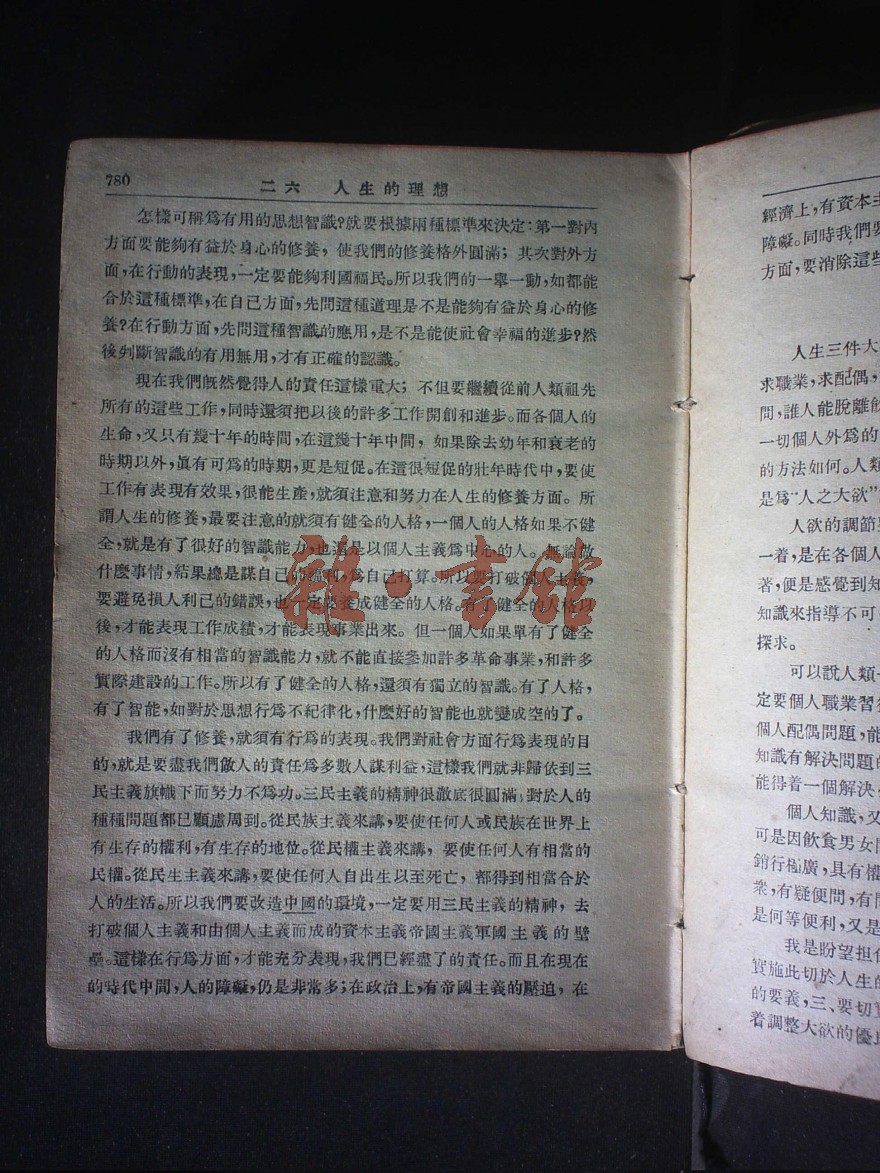 780
二六 人生的理想
怎樣可稱爲有用的思想智識?就要根據兩種標準來決定:第一對內
方面要能夠有益於身心的修養,使我們的修養格外圓滿;其次對外方
面,在行動的表現,一定要能夠利國福民。所以我們的一舉一動,如都能
合於這種標準,在自己方面,先問這種道理是不是能夠有益於身心的修
養?在行動方面,先問這種智識的應用,是不是能使社會幸福的進步?然
後判斷智識的有用無用,才有正確的認識。
現在我們旣然覺得人的責任這樣重大;不但要繼續從前人類祖先
所有的這些工作,同時還須把以後的許多工作開創和進步。而各個人的
生命,又只有幾十年的時間,在這幾十年中間,如果除去幼年和衰老的
時期以外,眞有可爲的時期,更是短促。在這很短促的壯年時代中,要使
工作有表現有效果,很能生產,就須注意和努力在人生的修養方面。所
謂人生的修養,最要注意的就須有健全的人格,一個人的人格如果不健
全,就是有了很好的智識能力,也還是以個人主義爲中心的人。無論做
什麼事情,結果總是謀自己的權利,爲自己打算。所以要打破個人主義,
要避免損人利己的錯誤,也一定要養成健全的人格。有了健全的人格以
後,才能表現工作成績,才能表現事業出來。但一個人如果單有了健全
的人格而沒有相當的智識能力,就不能直接參加許多革命事業,和許多
實際建設的工作。所以有了健全的人格,還須有獨立的智識。有了人格,
有了智能,如對於思想行爲不紀律化,什麼好的智能也就變成空的了。
我們有了修養,就須有行爲的表現。我們對社會方面行爲表現的目
的,就是要盡我們做人的責任爲多數人謀利益,這樣我們就非歸依到三
民主義旗幟下而努力不爲功。三民主義的精神很澈底很圓滿;對於人的
種種問題都已顧慮周到。從民族主義來講,要使任何人或民族在世界上
有生存的權利,有生存的地位。從民權主義來講,要使任何人有相當的
民權。從民生主義來講,要使任何人自出生以至死亡,都得到相當合於
人的生活。所以我們要改造中國的環境,一定要用三民主義的精神,去
打破個人主義和由個人主義而成的資本主義帝國主義軍國主義的壁
壘。這樣在行爲方面,才能充分表現,我們已經盡了的責任。而且在現在
的時代中間,人的障礙,仍是非常多;在政治上,有帝國主義的壓迫,在
經濟上,有資本主
障礙。同時我們要
方面,要消除這些
人生三件大
求職業,求配偶,
問,誰人能脫離
一切個人外爲的
的方法如何。人類
是爲"人之大欲"
人欲的調節
一着,是在各個人
著,便是感覺到知
知識來指導不可
探求。
可以說人類
定要個人職業習
個人配偶問題,能
知識有解決問題的
能得着一個解決,
個人知識,又
可是因飲食男女
銷行極廣,具有權
衆,有疑便問,有
是何等便利,又是
我是盼望担
實施此切於人生的
的要義,三、要切實
着調整大欲的優良
雜·書館